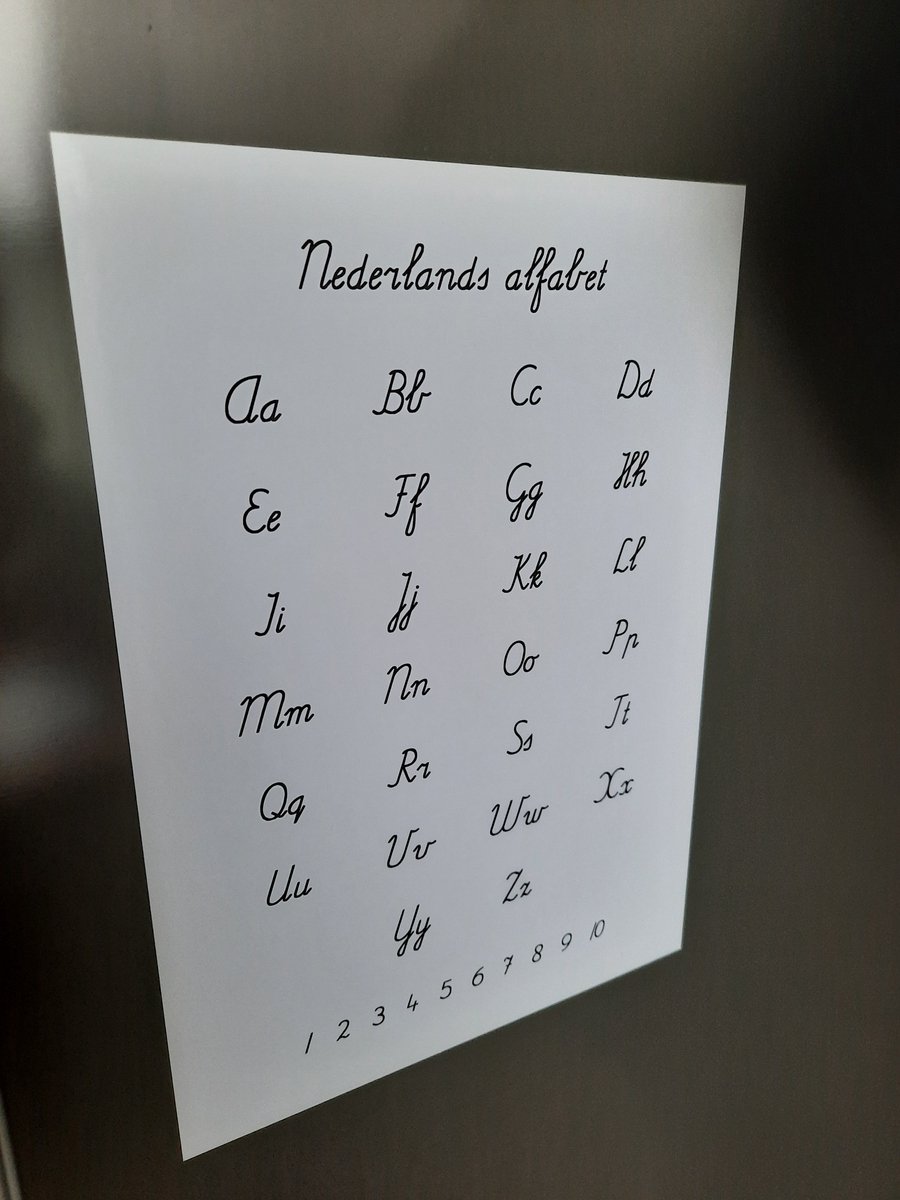 Nederlands alfabet
Aa Bb Cc Dd
Ee Ff Gg Hh
Ii Jj Kk Ll
Mm Nn Oo Pp
Qq Rr Ss Tt
Uu Vv Ww Xx
Yy Zz
1 2 3 4 5 6 7 8 9 10